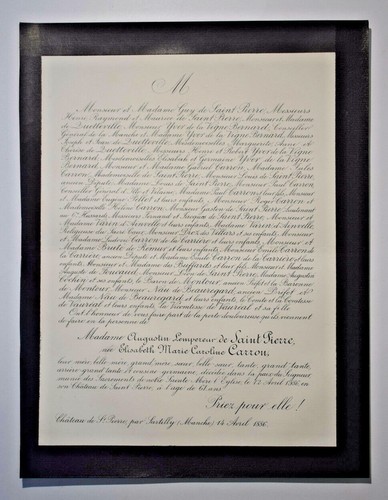 M
Monsieur et Madame Guy de Saint Pierre, Messieurs
Henri, Raymond et Maurice de Saint Pierre, Monsieur et Madame
de Quetteville, Monsieur Yver de la Vigne Bernard, Conseiller
Général de la Manche et Madame Yver de la Vigne Bernard, Messieurs
Joseph et Jean de Quetteville, Mesdemoiselles Marguerite, Anne et
de Quetteville, Messieurs Henri et Robert Yver de la Vigne
Bernard, Mesdemoiselles Elisabeth et Germaine Yver de la Vigne
Bernard, Monsieur et Madame Gabriel Carron, Madame Jules
Carron, Mademoiselle de Saint Pierre, Monsieur Louis de Saint Pierre
ancien Député, Madame Louis de Saint Pierre, Monsieur Paul Carron
Conseiller Général d'Ille et Vilaine, Madame Paul Carron, Monsieur
et Madame Eugène et leurs enfants, Monsieur Roger Carron et
Mademoiselle Hélène Carron, Monsieur Gaston de Saint Pierre, Lieutenant
au Hussards, Messieurs Fernand et Jacques de Saint Pierre, Monsieur et
Madame d'Aineville et leurs enfants, Madame d'Aineville
Religieuse du Sacré Cœur, Monsieur et ses enfants, Monsieur
et Madame Ludovic Carron de la Carrière et leurs enfants, Monsieur
et Madame et leurs enfants, Monsieur Emile Carron de
la Carrière, ancien Député et Madame Emile Carron de la Carrière et leurs
enfants, Monsieur et Madame des Buffards et leur fils, Monsieur et Madame
Auguste de Foucaud, Monsieur Léon de Saint Pierre, Madame Augustin
Cochin et ses enfants, le Baron de Montour, ancien Préfet et la Baronne
de Montour, Monsieur Nau de Beauregard, ancien Préfet et
Madame Nau de Beauregard et leurs enfants, le Comte et la Comtesse
de Vauréal et leurs enfants, la Vicomtesse de Vauréal et sa fille
Ont l'honneur de vous faire part de la perte douloureuse qu'ils viennent
de faire en la personne de
Madame Augustin Lempereur de Saint Pierre,
née Elisabeth Marie Caroline Carron,
leur mère, belle-mère, grand'mère, sœur, belle-sœur, tante, grand'tante,
arrière-grand'tante et cousine germaine, décédée dans la paix du Seigneur
munie des Sacrements de notre Sainte Mère l'Eglise, le 12 Avril 1886, en
son Château de Saint Pierre, à l'âge de 61 ans
Priez pour elle !
Château de St Pierre, par Sartilly (Manche) 14 Avril 1886.